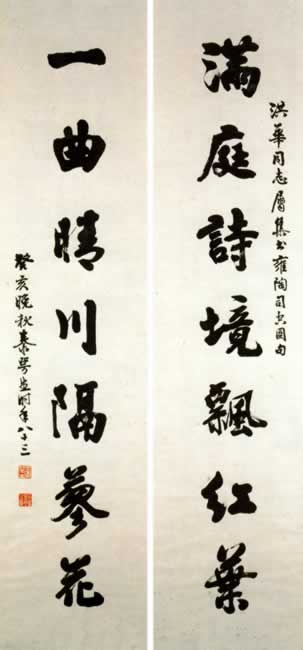 洪華同志屬集书雍陶司空圖句
滿庭詩境飄紅葉
一曲晴川隔蓼花
癸亥晚秋秦咢生时年八十三